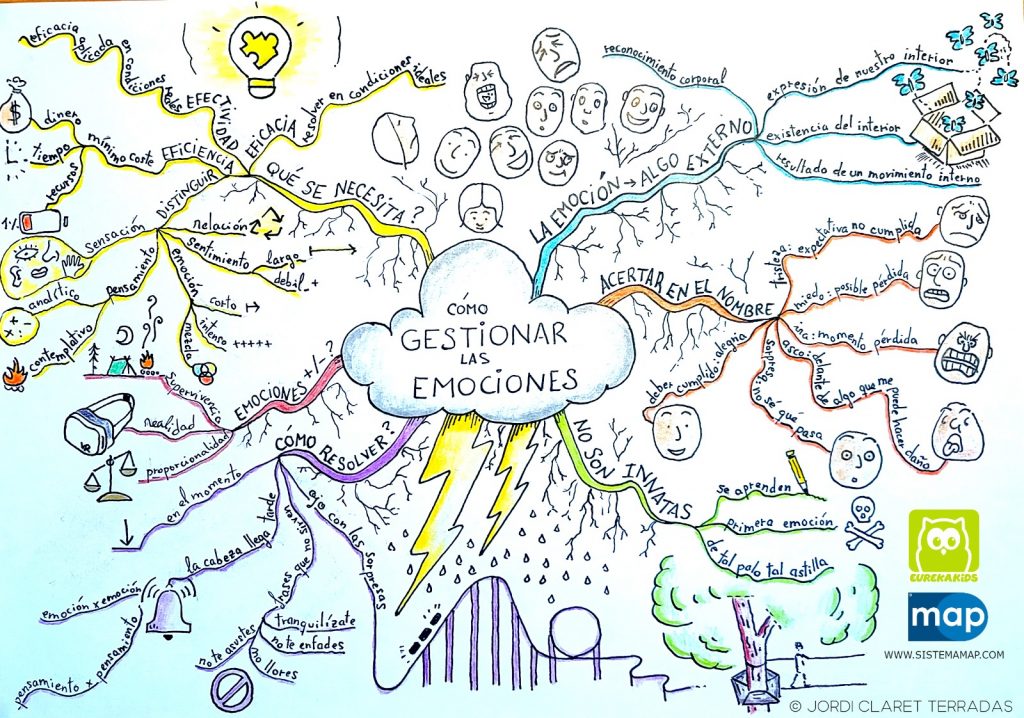 CÓMO
GESTIONAR
LAS
EMOCIONES
LA EMOCIÓN → ALGO EXTERNO
reconocimiento corporal
expresión de nuestro interior
existencia del interior
resultado de un movimiento interno
ACERTAR EN EL NOMBRE
tristeza: expectativa no cumplida
miedo: posible pérdida
ira: momento pérdida
asco: delante de algo que me
puede hacer daño
sorpresa: no sé qué pasa
deber cumplido: alegría
NO SON INNATAS
se aprenden
primera emoción
de tal palo tal astilla
CÓMO RESOLVER?
ojo con las sorpresas
frases que no sirven
tranquilízate
no te enfades
no llores
no te asustes
la cabeza llega tarde
emoción x emoción
pensamiento x pensamiento
en el momento
EMOCIONES +/-?
Supervivencia
realidad
VR
proporcionalidad
QUÉ SE NECESITA?
EFICACIA
resolver en condiciones ideales
EFECTIVIDAD
eficacia aplicada en condiciones reales
DISTINGUIR
EFICIENCIA
mínimo corte
dinero
$
tiempo
recursos
1%
sensación
pensamiento
analítico
+ -
contemplativo
relación
sentimiento
largo
débil .+
emoción
corto
intenso +++++
mezcla
EUREKAKIDS
map
WWW.SISTEMAMAP.COM
© JORDI CLARET TERRADAS